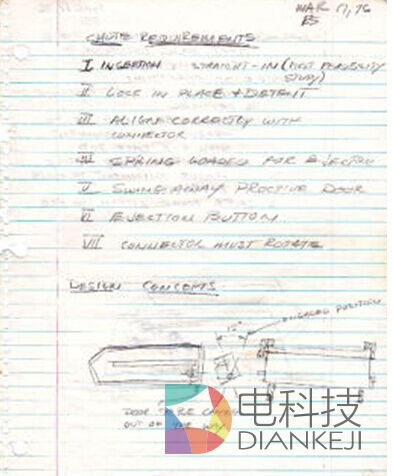 MAR 17, 76
CHUTE REQUIREMENTS
I INSERTION : STRAIGHT-IN (
STUDY)
II LOCK IN PLACE + DETENT
III ALIGN CORRECTLY WITH
CONNECTOR
IV SPRING LOADED FOR EJECTION
V SWING AWAY DOOR
VI EJECTION BUTTON
VII CONNECTOR MUST ROTATE
DESIGN CONCEPTS
15°
ENGAGED POSITION
DOOR TO BE
OUT OF THE WAY
电科技
DIANKEJI